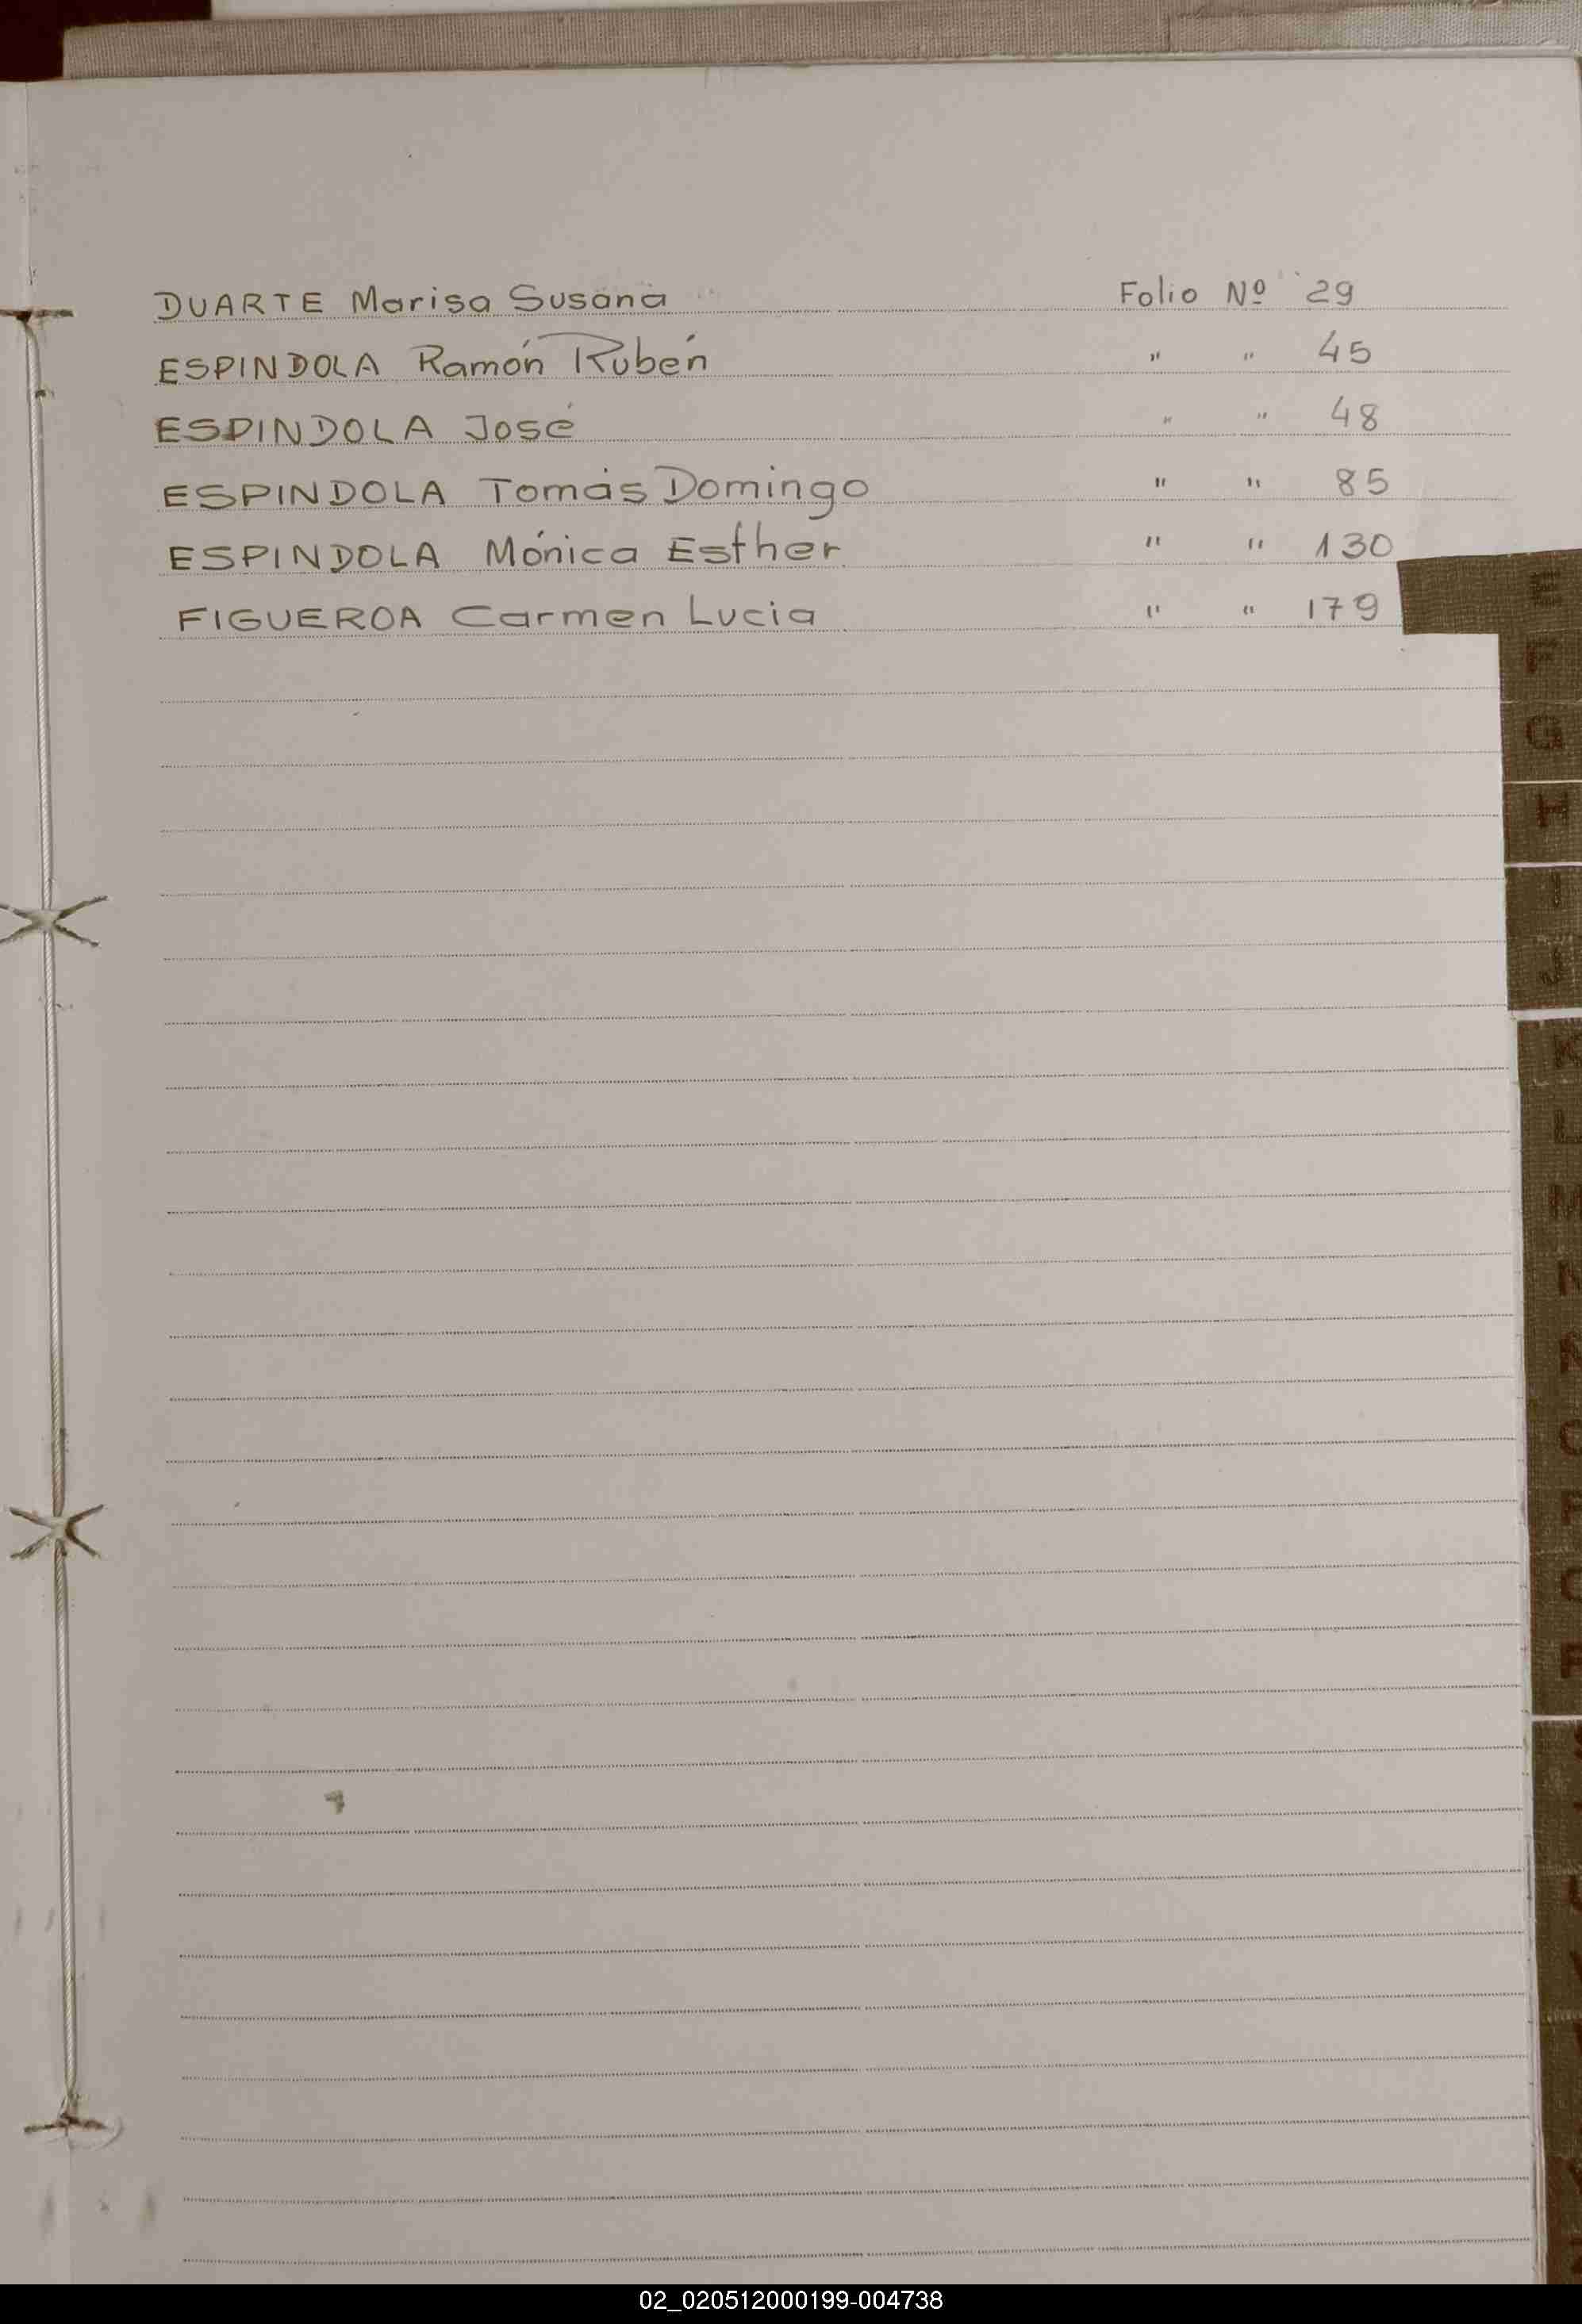 DUARTE Marisa Susana Folio Nº 29
ESPINDOLA Ramón Rubén " " 45
ESPINDOLA José " " 48
ESPINDOLA Tomás Domingo " " 85
ESPINDOLA Mónica Esther " " 130
FIGUEROA Carmen Lucia " " 179
E
F
G
H
I
J
K
L
M
N
Ñ
O
P
Q
R
02_020512000199-004738